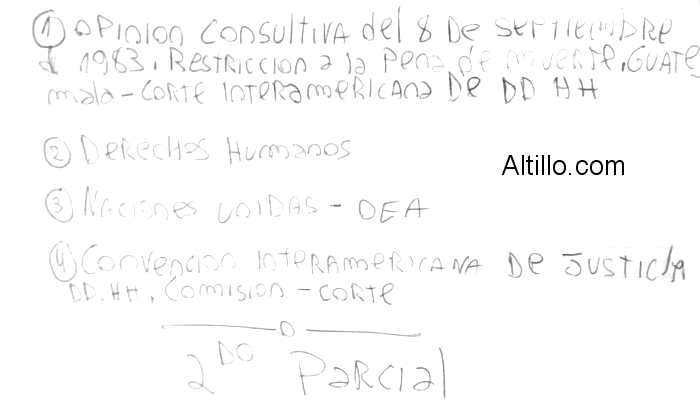 ① OPINION CONSULTIVA del 8 De SEPTIEMBRE
de 1983. RESTRICCION a la Pena de muerte. GUATE
mala - CORTE INTERAMERICANA De DD HH
② DERECHOS HUMANOS
Altillo.com
③ NACIONES UNIDAS - OEA
④ CONVENCION INTERAMERICANA De JUSTICIA
DD.HH. COMISION - CORTE
O
2DO PARCIAL